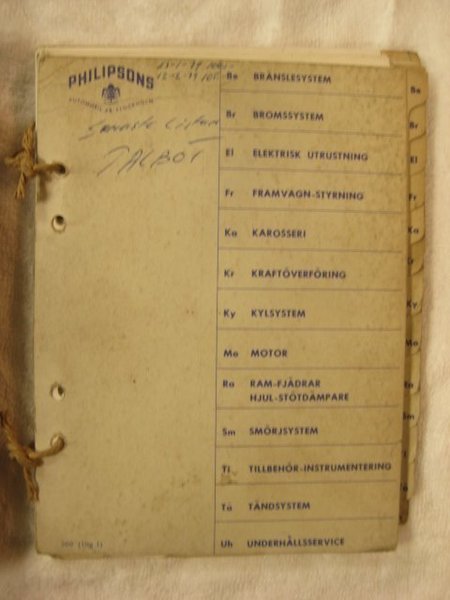 PHILIPSONS
AUTOMOBIL AB STOCKHOLM
Senaste Listan
TALBOT
Be BRÄNSLESYSTEM
Br BROMSSYSTEM
El ELEKTRISK UTRUSTNING
Fr FRAMVAGN-STYRNING
Ka KAROSSERI
Kr KRAFTÖVERFÖRING
Ky KYLSYSTEM
Mo MOTOR
Ra RAM-FJÄDRAR
HJUL-STÖTDÄMPARE
Sm SMÖRJSYSTEM
Ti TILLBEHÖR-INSTRUMENTERING
Tä TÄNDSYSTEM
Uh UNDERHÅLLSSERVICE
Br
El
Fr
Ka
Kr
Ky
Mo
Ra
Sm